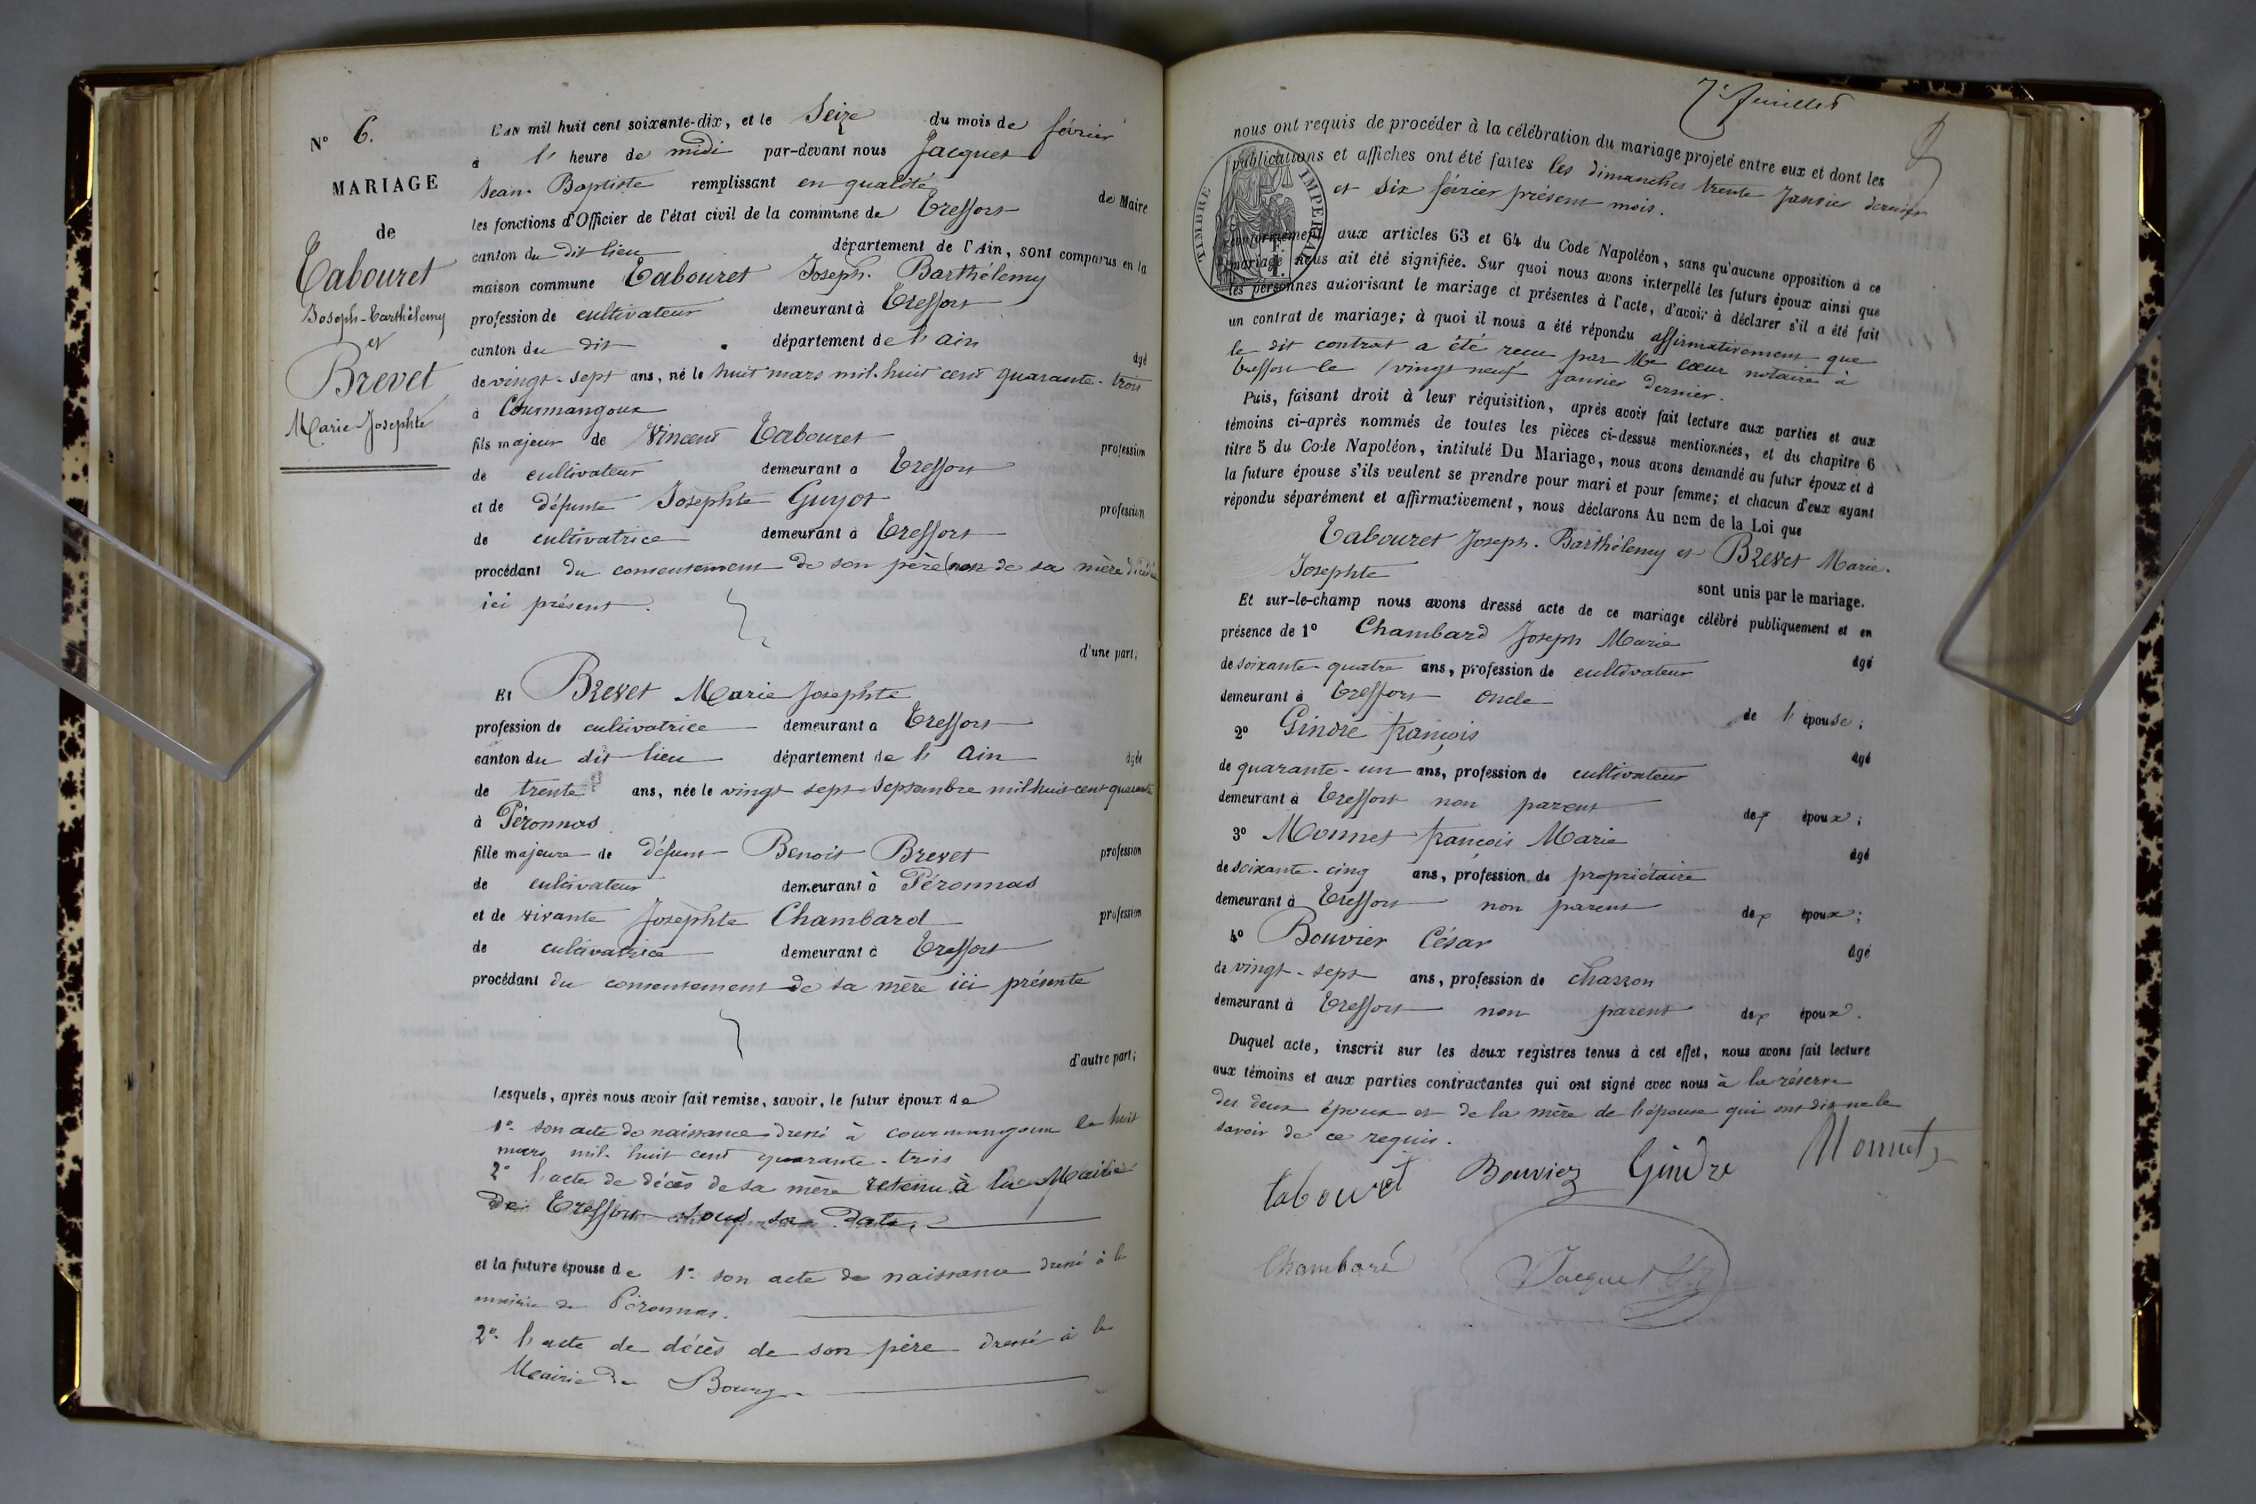 N° 6.
MARIAGE
de
Tabouret
Joseph-Barthélemy
et
Brevet
Marie Josephte
L'AN mil huit cent soixante-dix, et le Seize du mois de février
à l' heure de midi par-devant nous Jacquet
Jean-Baptiste remplissant en qualité de Maire
les fonctions d'Officier de l'état civil de la commune de Treffort
canton du dit lieu département de l'Ain, sont comparus en la
maison commune Tabouret Joseph-Barthélemy
profession de cultivateur demeurant à Treffort
canton du dit département de l'ain âgé
de vingt-sept ans, né le huit mars mil-huit cent quarante-trois
à Courmangoux
fils majeur de Vincent Tabouret profession
de cultivateur demeurant à Treffort
et de défunte Josephte Guyot profession
de cultivatrice demeurant à Treffort
procédant du consentement de son père (non de sa mère décédée
ici présent.
d'une part;
Et Brevet Marie Josephte
profession de cultivatrice demeurant à Treffort
canton du dit lieu département de l'Ain âgée
de trente ans, née le vingt sept septembre mil huit cent quarante
à Péronnas
fille majeure de défunt Benoit Brevet profession
de cultivateur demeurant à Péronnas
et de vivante Josèphte Chambard profession
de cultivatrice demeurant à Treffort
procédant du consentement de sa mère ici présente
d'autre part;
Lesquels, après nous avoir fait remise, savoir, le futur époux de
1° son acte de naissance dressé à courmangoux le huit
mars mil-huit cent quarante-trois
2° l'acte de décès de sa mère retenu à la Mairie
de Treffort sous sa date,
et la future épouse de 1° son acte de naissance dressé à la
mairie de Péronnas.
2° l'acte de décès de son père dressé à la
Mairie de Bourg.
7e feuillet
nous ont requis de procéder à la célébration du mariage projeté entre eux et dont les
publications et affiches ont été faites les dimanches trente Janvier dernier
et six février présent mois.
TIMBRE IMPERIAL
conformément aux articles 63 et 64 du Code Napoléon, sans qu'aucune opposition à ce
mariage nous ait été signifiée. Sur quoi nous avons interpellé les futurs époux ainsi que
les personnes autorisant le mariage et présentes à l'acte, d'avoir à déclarer s'il a été fait
un contrat de mariage; à quoi il nous a été répondu affirmativement que
le dit contrat a été reçu par Me Cœur notaire à
treffort le vingt neuf Janvier dernier.
Puis, faisant droit à leur réquisition, après avoir fait lecture aux parties et aux
témoins ci-après nommés de toutes les pièces ci-dessus mentionnées, et du chapitre 6
titre 5 du Code Napoléon, intitulé Du Mariage, nous avons demandé au futur époux et à
la future épouse s'ils veulent se prendre pour mari et pour femme; et chacun d'eux ayant
répondu séparément et affirmativement, nous déclarons Au nom de la Loi que
Tabouret Joseph-Barthélemy et Brevet Marie-
Josephte sont unis par le mariage.
Et sur-le-champ nous avons dressé acte de ce mariage célébré publiquement et en
présence de 1° Chambard Joseph Marie âgé
de soixante-quatre ans, profession de cultivateur
demeurant à Treffort oncle de l'épouse;
2° Gindre françois âgé
de quarante-un ans, profession de cultivateur
demeurant à Treffort non parent des époux;
3° Monnet françois Marie âgé
de soixante-cinq ans, profession de propriétaire
demeurant à Treffort non parent des époux;
4° Bouvier César âgé
de vingt-sept ans, profession de charron
demeurant à Treffort non parent des époux.
Duquel acte, inscrit sur les deux registres tenus à cet effet, nous avons fait lecture
aux témoins et aux parties contractantes qui ont signé avec nous à la réserve
des deux époux et de la mère de l'épouse qui ont dit ne le
savoir de ce requis.
tabouret Bouvier Gindre Monnet
Chambard Jacquet